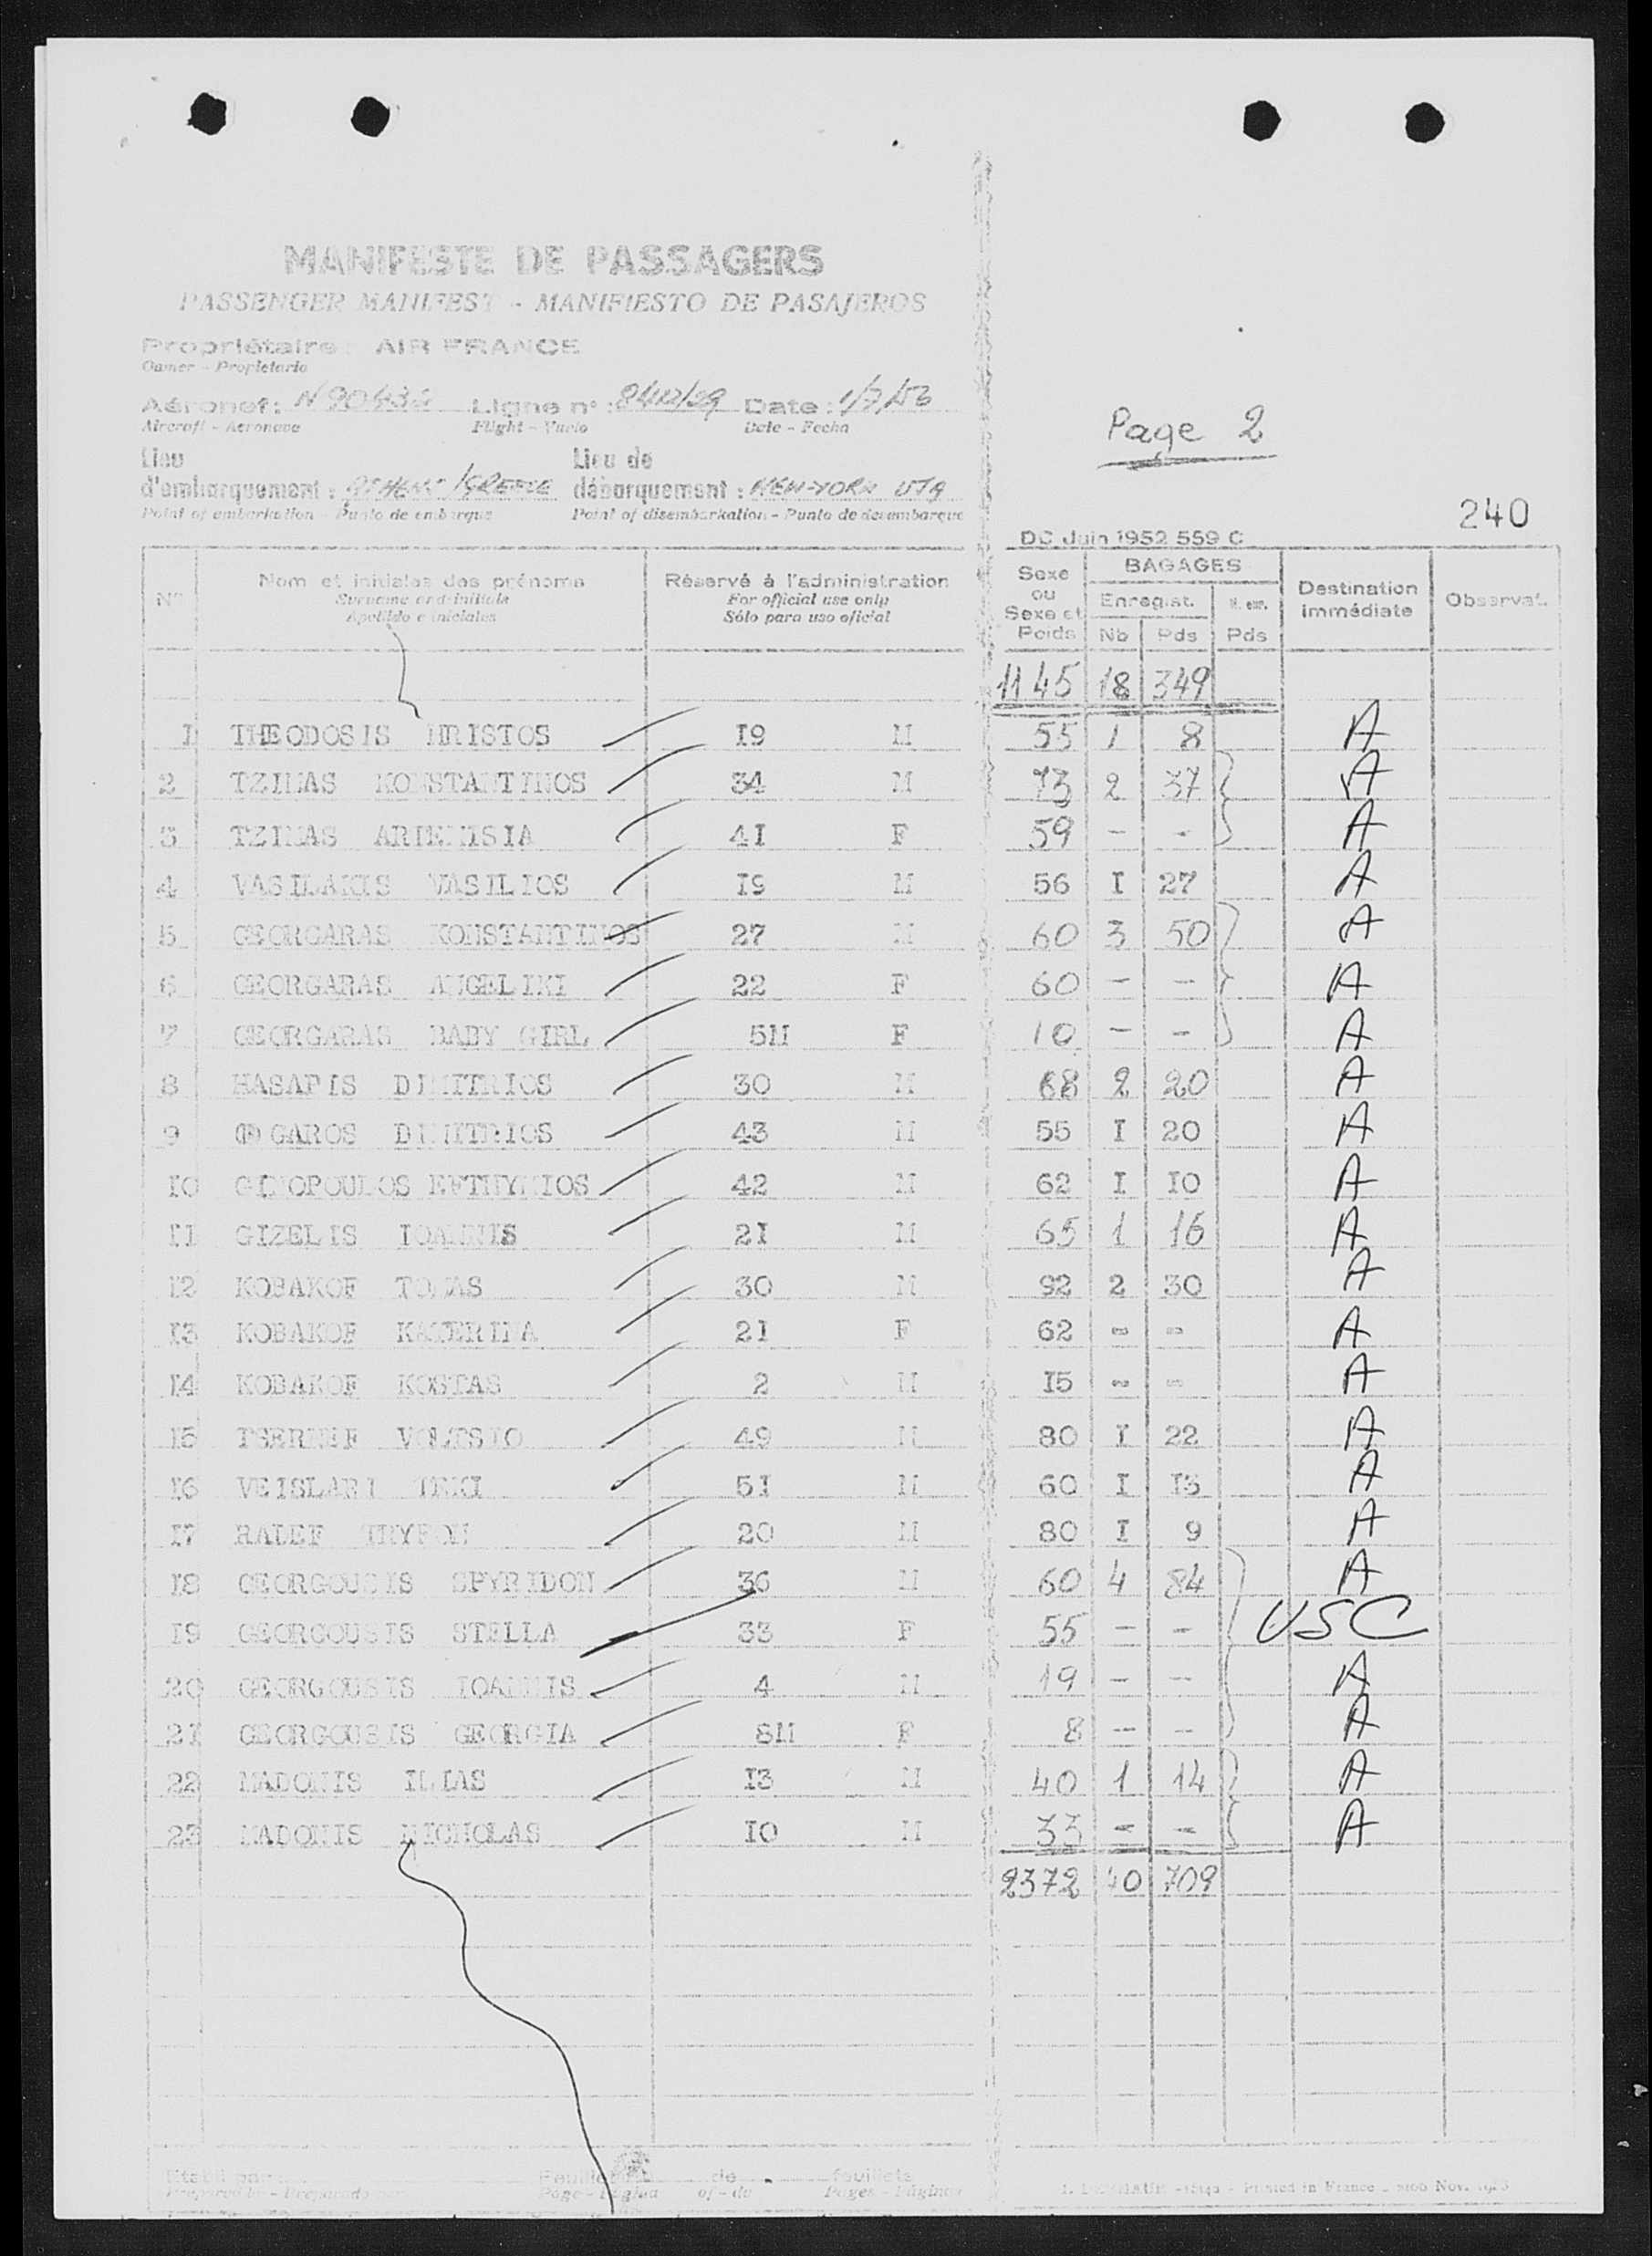 MANIFESTE DE PASSAGERS
PASSENGER MANIFEST - MANIFIESTO DE PASAJEROS
Propriétaire : AIR FRANCE
Owner - Propietario
Aéronef : Ligne n° : Date :
Aircraft - Aeronave Flight - Vuelo Date - Fecha
Page 2
Lieu Lieu de
d'embarquement : ATHENS / GREECE débarquement : NEW-YORK USA
Point of embarkation - Punto de embarque Point of disembarkation - Punto de desembarque
240
DC Juin 1952 559 C
N° Nom et initiales des prénoms Réservé à l'administration Sexe ou Sexe et Poids BAGAGES Destination immédiate Observat.
Surname and initials For official use only Enregist.
Apellido e iniciales Sólo para uso oficial Nb Pds Pds
1145 18 349
I THEODOSIS HRISTOS I9 M 55 1 8 A
2 TZIMAS KONSTANTINOS 34 M 73 2 37 A
3 TZIMAS ARTEMISIA 4I F 59 - - A
4 VASILAKIS VASILIOS I9 M 56 I 27 A
5 GEORGARAS KONSTANTINOS 27 M 60 3 50 A
6 GEORGARAS ANGELIKI 22 F 60 - - A
7 GEORGARAS BABY GIRL 5M F 10 - - A
8 HASAPIS DIMITRIOS 30 M 68 2 20 A
9 GAROS DIMITRIOS 43 M 55 I 20 A
IO EFTHYMIOS 42 M 62 I IO A
II GIZELIS IOANNIS 2I M 65 1 16 A
I2 KOBAKOF TOMAS 30 M 92 2 30 A
I3 KOBAKOF KATERINA 2I F 62 - - A
I4 KOBAKOF KOSTAS 2 M I5 - - A
I5 49 M 80 I 22 A
I6 VEISLARI 5I M 60 I I3 A
I7 RALEF TRYFON 20 M 80 I 9 A
I8 GEORGOUSIS SPYRIDON 36 M 60 4 84 A
I9 GEORGOUSIS STELLA 33 F 55 - - USC
20 GEORGOUSIS IOANNIS 4 M 19 - - A
2I GEORGOUSIS GEORGIA 8M F 8 - - A
22 MADONIS ILIAS I3 M 40 1 14 A
23 MADONIS NICHOLAS IO M 33 - - A
2372 40 709
Feuillet de feuillets
Page - Página of - de Pages - Páginas
Printed in France